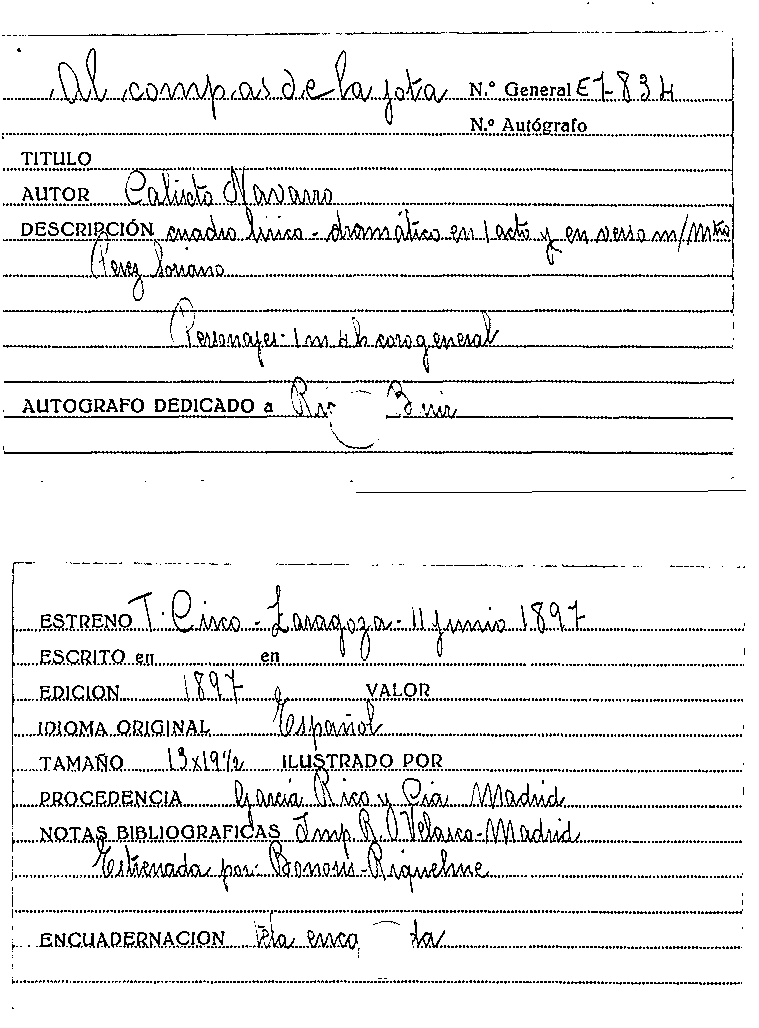 Al compas de la jota N.º General E7-834
N.º Autógrafo
TITULO
AUTOR Calixto Navarro
DESCRIPCIÓN cuadro lírico-dramático en 1 acto y en verso m/Mtro
Perez Soriano
Personajes-1m 4h coro general
AUTOGRAFO DEDICADO a
ESTRENO T. Circo-Zaragoza-11 junio 1897
ESCRITO en en
EDICION 1897 VALOR
IDIOMA ORIGINAL Español
TAMAÑO 13x19½ ILUSTRADO POR
PROCEDENCIA García Rico y Cía Madrid
NOTAS BIBLIOGRAFICAS Imp R. Velasco-Madrid
Estrenada por: Bonoris-Riquelme
ENCUADERNACION